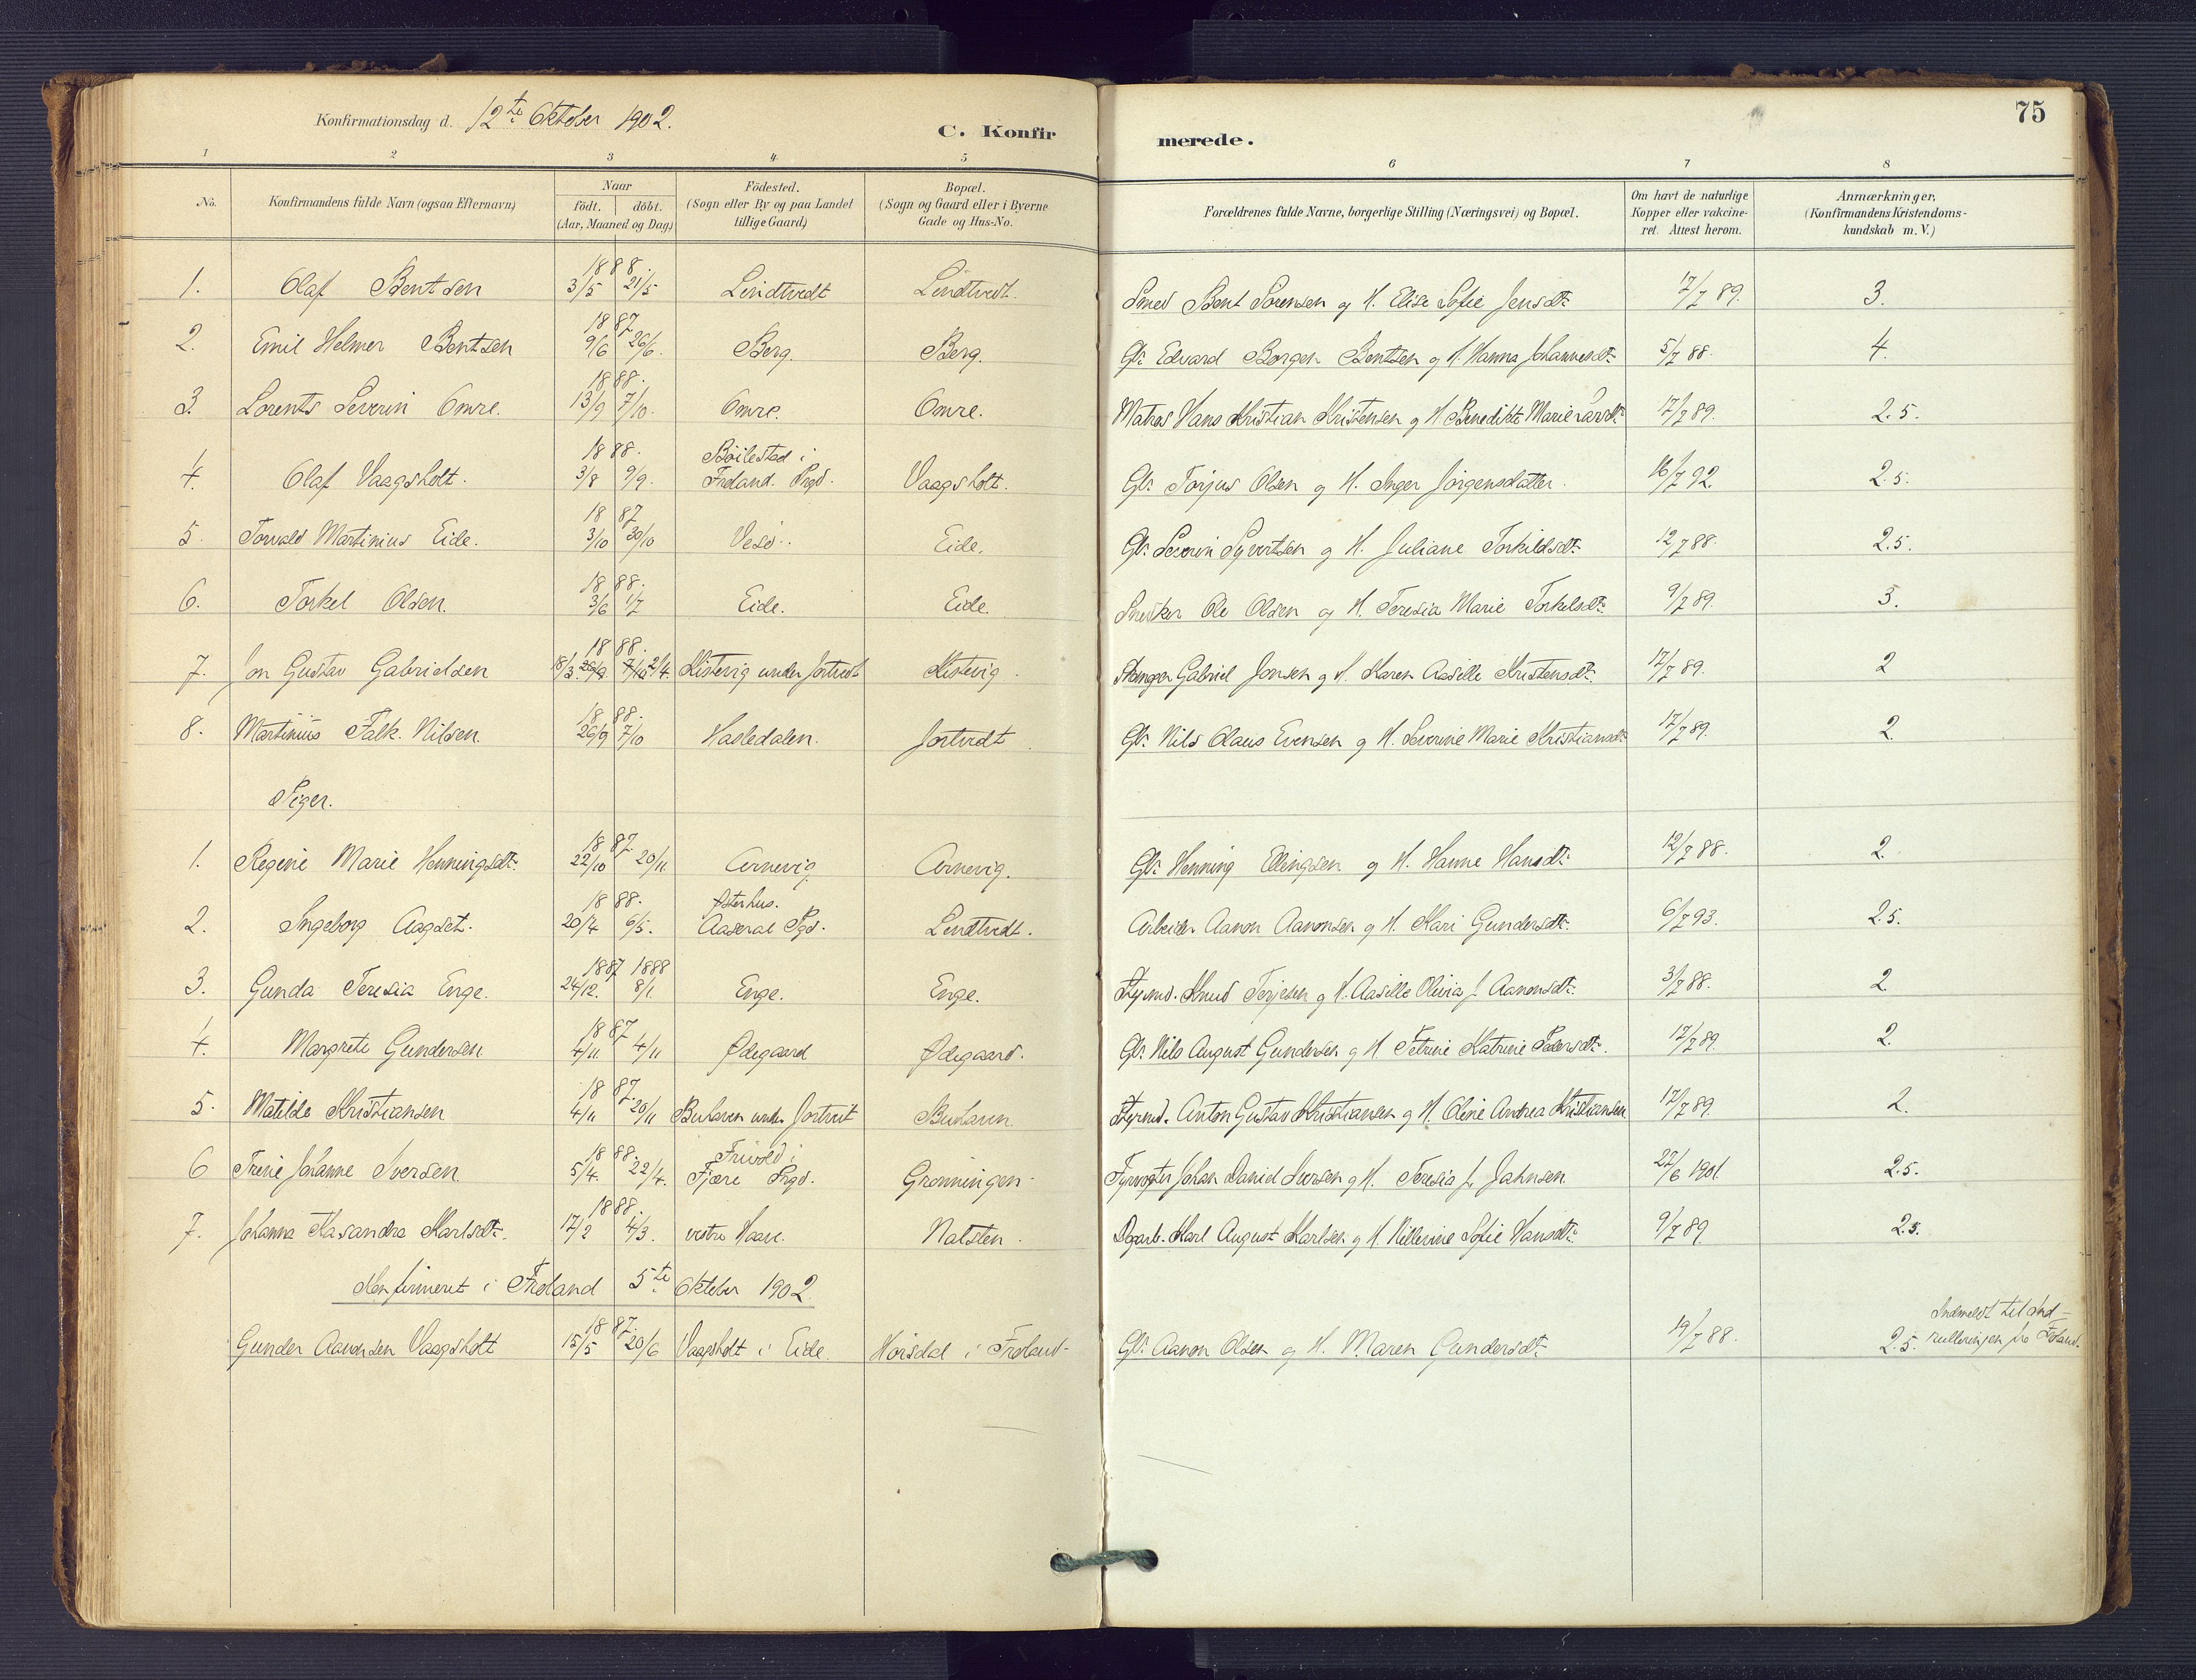 75
Konfirmationsdag d. 12te Oktober 1902.
C. Konfirmerede.
1 2 3 4 5 6 7 8
No. Konfirmandens fulde Navn (ogsaa Efternavn) Naar födt. döbt. (Aar, Maaned og Dag) Födested. (Sogn eller By og paa Landet tillige Gaard) Bopæl. (Sogn og Gaard eller i Byerne Gade og Hus-No. Forældrenes fulde Navne, borgerlige Stilling (Næringsvei) og Bopæl. Om havt de naturlige Kopper eller vakcineret. Attest herom. Anmærkninger, (Konfirmandens Kristendomskundskab m. V.)
1888.
1. Olaf Bentsen 3/5 21/5 Lindtvedt Lindtvedt. Smed Bent Sörensen og H. Elise Sofie Jensdt: 17/7 89. 3.
1887
2. Emil Helmer Bentsen 9/6 26/6. Berg. Berg. Gb: Edvard Borgen Bentsen og H. Hanna Johannesdt: 5/7 88. 4.
1888.
3. Lorents Severin Omre. 13/9 7/10. Omre. Omre. Matros Hans Kristian Kristensen og H Benedikte Marie Larsdt: 17/7 89. 2.5.
1888. Böilestad i
4. Olaf Vaagsholt. 3/8 9/9. Froland Prgd. Vaagsholt. Gb: Torjus Olsen og H. Inger Jörgensdatter. 16/7 92. 2.5.
1887
5. Torvald Martinius Eide. 3/10 30/10 Vesö. Eide. Gb: Severin Syvertsen og H. Juliane Torkildsdt: 12/7 88. 2.5.
1888.
6. Torkel Olsen. 3/6 1/7 Eide. Eide. Snedker Ole Olsen og H. Teresia Marie Torkelsdt: 9/7 89. 3.
1888.
7. Jon Gustav Gabrielsen 18/3. 26/9 7/10 2/4. Kistevig under Jortvedt Kistevig. Gabriel Jonsen og H. Karen Aasille Kristensdt. 17/7 89. 2
1888.
8. Martinius Falk. Nilsen. 26/9 7/10 Hasledalen. Jortvedt. Gb: Nils Olaus Evensen og H. Severine Marie Kristiansdt: 17/7 89. 2.
Piger.
1887
1. Regine Marie Henningsdt: 22/10 20/11. Arnevig Arnevig. Gb: Henning Ellingsen og H. Hanne Hansdt: 12/7 88. 2.
1888. Østerhus.
2. Ingeborg Aagset. 20/4 6/5. Aaseral Pgd. Lindtvedt. Arbeider Aanon Aanonsen og H. Kari Gundersdt: 6/7 93. 2.5.
1887 1888
3. Gunda Teresia Enge. 24/12. 8/1. Enge. Enge. Styrmd. Knud Terjesen og H. Aasille Olivia f. Aanonsdt: 3/7 88. 2.
1887
4. Margrete Gundersen 4/11 4/11 Ødegaard Ødegaard. Gb: Nils August Gundersen og H. Petrine Katrine Pedersdt: 17/7 89. 2.
1887.
5. Matilde Kristiansen 4/11 20/11 Buhaven under Jortveit Buhaven. Styrmd. Anton Gustav Kristiansen og H. Oline Andrea Kristiansen 17/7 89. 2.
1888. Frivold i
6 Trine Johanne Iversen. 5/4. 22/4. Fjære Prgd. Grönningen. Fyrvogter Johan Daniel Iversen og H. Teresia f. Jahnsen. 22/6 1901. 2.5.
1888.
7. Johanna Kasandra Karlsdt:. 17/2 4/3. vestre Haave. Natsten. Dagarb. Karl August Karlsen og H. Nillerine Sofie Hansdt: 9/7 89. 2.5.
Konfirmeret i Froland 5te Oktober 1902.
1887.
Gunder Aanonsen Vaagsholt 15/5 20/6 Vaagsholt i Eide. Hörsdal i Froland. Gb: Aanon Olsen og H. Maren Gundersdt: 19/7 88. 2.5.
Indmeldt til Indrulleringen fra Froland.